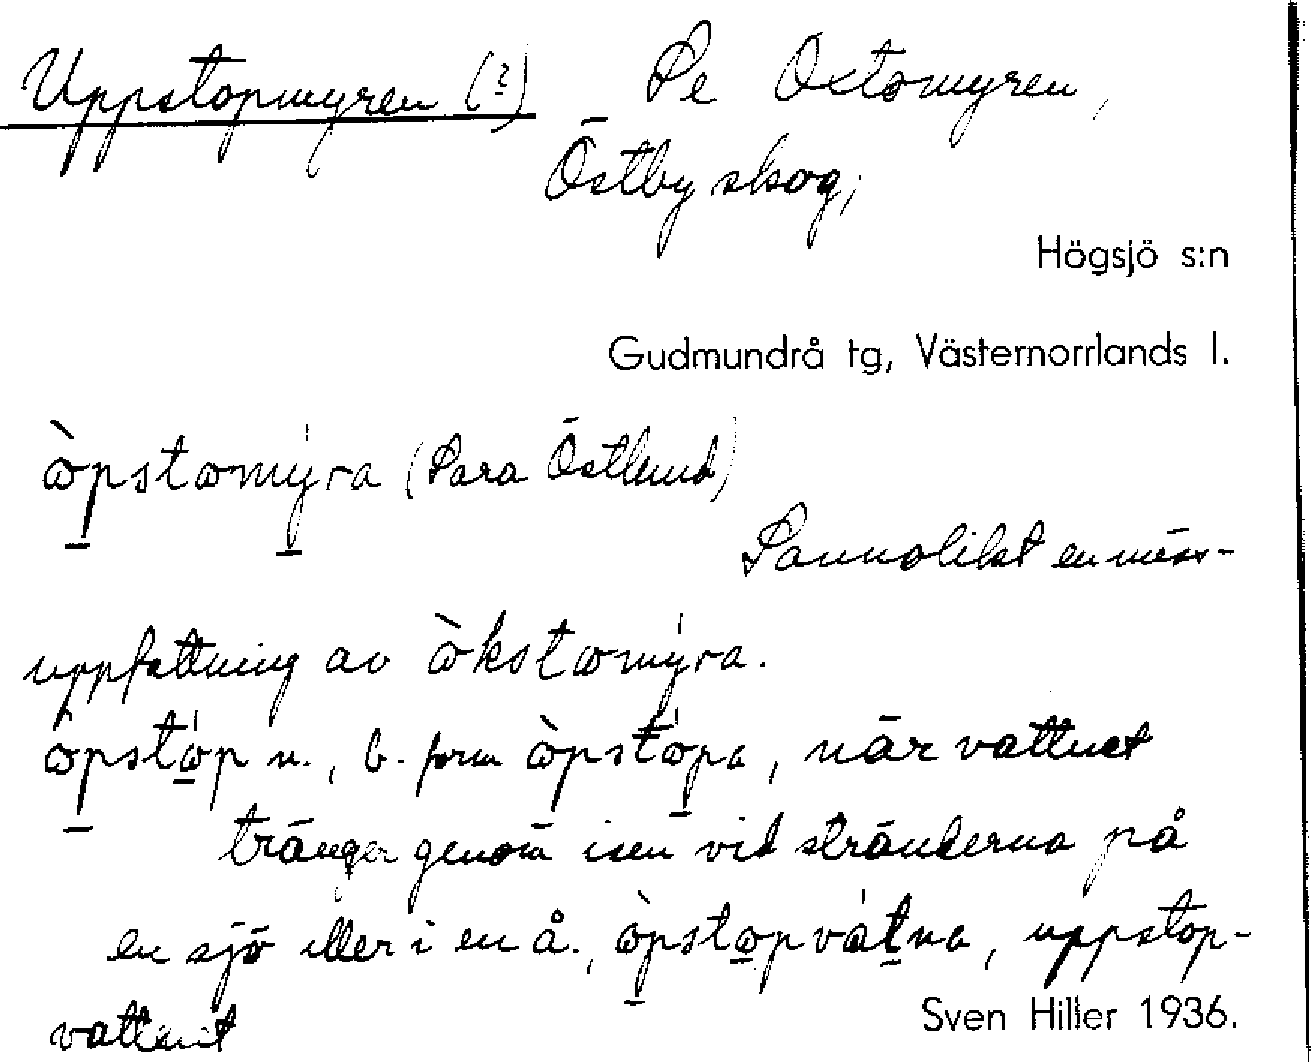 Uppstopmyren (?) Se Oxtomyren,
Östby skog,
Högsjö s:n
Gudmundrå tg, Västernorrlands l.
ɷ̀pstɷmy̍ra (Sara Östlund)
Sannolikt en miss-
uppfattning av ɷ̀kstɷmy̍ra.
ɷ̀pstɷ̍p n., b. form ɷ̀pstɷ̍pa, när vattnet
tränger genom isen vid stränderna på
en sjö eller i en å., ɷ̀pstɷpva̍tna, uppstop-
vattnet
Sven Hiller 1936.